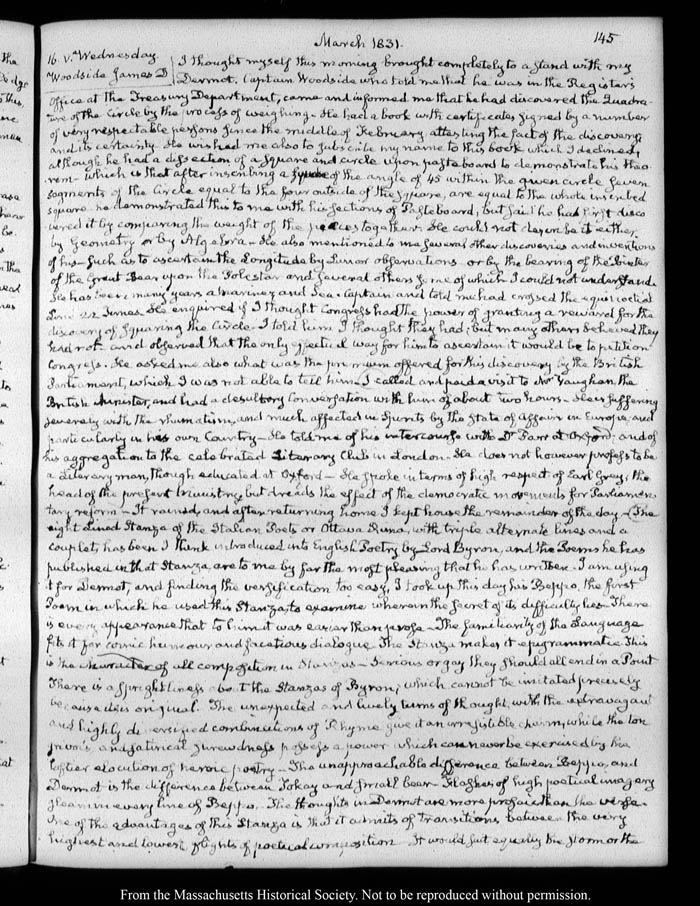 March 1831.
145
16. V. Wednesday.
Woodside James D
I thought myself this morning brought completely to a stand with my
Dermot. Captain Woodside who told me that he was in the Register's
Office at the Treasury Department, came and informed me that he had discovered the Quadra-
ture of the Circle by the process of weighing. He had a book with certificates signed by a number
of very respectable persons since the middle of February attesting the fact of the discovery
and its certainty. He wished me also to subscribe my name to this book which I declined,
although he had a dissection of a square and circle upon pasteboard to demonstrate his theo
rem— which is that after inscribing a square of the angle of 45 within the given circle seven
segments of the Circle equal to the four outside of the square, are equal to the whole inscribed
square. he demonstrated this to me with his sections of Pasteboard, but said he had first disco
vered it by comparing the weight of the pieces together. He could not describe it either
by Geometry or by Algebra— He also mentioned to me several other discoveries and inventions
of his— Such as to ascertain the Longitude by Lunar observations or by the bearing of the
of the Great Bear upon the Polestar and several others some of which I could not understand.
He has been many years a mariner and Sea-Captain and told me had crossed the equinoctial
Line 22 times. He enquired if I thought Congress had the power of granting a reward for the
discovery of squaring the Circle. I told him I thought they had; but many others believed they
had not— and observed that the only effectual way for him to ascertain it would be to petition
Congress. He asked me also what was the premium offered for this discovery by the British
Parliament, which I was not able to tell him— I called and paid a visit to Mr Vaughan, the
British Minister, and had a desultory Conversation with him of about two hours— He is suffering
severely with the rhumatism, and much affected in Spirits by the State of affairs in Europe, and
particularly in his own Country— He told me of his intercourse with Dr Parr at Oxford; and of
his aggregation to the celebrated Literary Club in London. He does not however profess to be
a Literary man, though educated at Oxford— He spoke in terms of high respect of Earl Grey, the
head of the present Ministry, but dreads the effect of the democratic movements for Parliamen-
tary reform— It rained, and after returning home I kept house the remainder of the day— The
eight lined Stanza of the Italian Poets or Ottava Rima, with triple alternate lines and a
couplet, has been I think introduced into English Poetry by Lord Byron, and the Poems he has
published in that Stanza, are to me by far the most pleasing that he has written. I am using
it for Dermot, and finding the versification too easy, I took up this day his Beppo, the first
Poem in which he used this Stanza, to examine wherein the secret of its difficulty lies. There
is every appearance that to him it was easier than prose— The familiarity of the Language
fits it for comic humour and facetious dialogue. The Stanza makes it epigrammatic. This
is the character of all composition in Stanzas— Serious or gay they should all end in a Point
There is a sprightliness about the Stanzas of Byron, which cannot be imitated precisely
because it is original. The unexpected and lively turns of thought, with the extravagant
and highly diversified combinations of Rhyme give it an irresistible charm, while the
and satirical shrewdness possess a power which can never be exercised by the
loftier elocution of heroic poetry— The unapproachable difference between Beppo, and
Dermot is the difference between Tokay and small beer— Flashes of high poetical imagery
gleam in every line of Beppo. The thoughts in Dermot are more prosaic than the verse.
One of the advantages of this Stanza is that it admits of transitions between the very
highest and lowest flights of poetical composition. It would suit equally the storm or the
From the Massachusetts Historical Society. Not to be reproduced without permission.